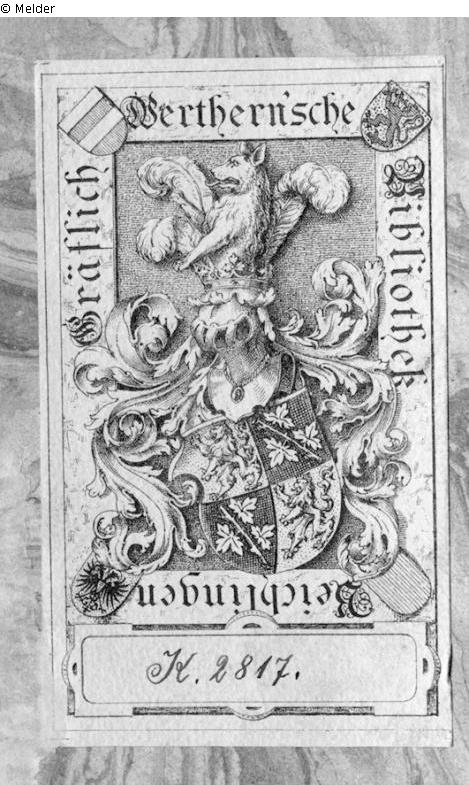 © Melder
Gräflich
Werthern'sche
Bibliothek
Beichlingen
K. 2817.